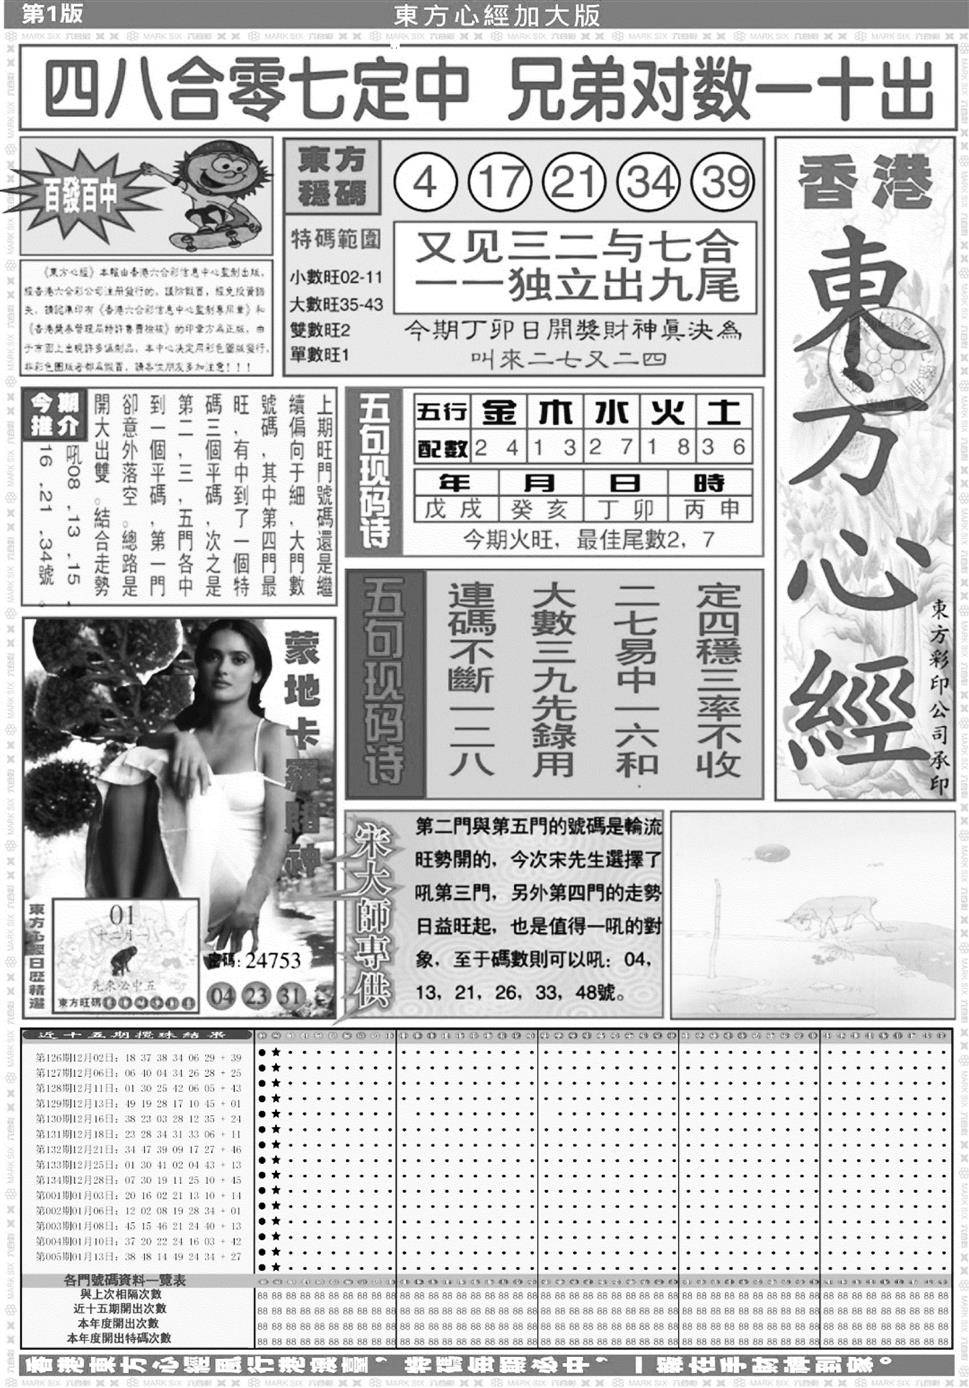 第1版
東方心經加大版
四八合零七定中 兄弟对数一十出
百發百中
《東方心經》本報由香港六合彩信息中心監制出版，
經香港六合彩公司注册發行的。謹防假冒，經免投資損
失。請認準印有《香港六合彩信息中心監制專用章》和
《香港獎券管理局特許售賣檢核》的印章方爲正版。由
于市面上出現許多僞制品，本中心决定用彩色圖版發行，
非彩色圖版者都爲假冒，請各位朋友多加注意！！！
東方
穩碼
4 17 21 34 39
特碼範圍
小數旺02-11
大數旺35-43
雙數旺2
單數旺1
又见三二与七合
一一独立出九尾
今期丁卯日開獎財神眞決為
叫來二七又二四
香港
東方心經
東方彩印公司承印
今期
推介
上期旺門號碼還是繼
續偏向于細，大門數
號碼，其中第四門最
旺，有中到了一個特
碼三個平碼，次之是
第二，三，五門各中
到一個平碼，第一門
卻意外落空。總路是
開大出雙。結合走勢
吼08，13，15，
16，21，34號。
五句现码诗
五行 金 木 水 火 土
配數 2 4 1 3 2 7 1 8 3 6
年 月 日 時
戊戌 癸亥 丁卯 丙申
今期火旺，最佳尾數2，7
五句现码诗
定四穩三率不收
二七易中一六和
大數三九先錄用
連碼不斷一二八
蒙地卡羅賭神
東方心經日歷精選
01
十二月一
先來必中五
東方旺碼
密碼：24753
04 23 31
宋大師專供
第二門與第五門的號碼是輪流
旺勢開的，今次宋先生選擇了
吼第三門，另外第四門的走勢
日益旺起，也是值得一吼的對
象，至于碼數則可以吼：04，
13，21，26，33，48號。
近十五期攪珠結果
第126期12月02日：18 37 38 34 06 29 + 39
第127期12月06日：06 40 04 34 26 28 + 25
第128期12月11日：01 30 25 42 06 05 + 43
第129期12月13日：49 19 28 17 10 45 + 01
第130期12月16日：38 23 03 28 12 35 + 24
第131期12月18日：23 28 34 31 33 06 + 11
第132期12月21日：34 47 39 09 17 27 + 46
第133期12月25日：01 30 41 02 04 43 + 13
第134期12月28日：07 30 19 11 25 10 + 45
第001期01月03日：20 16 02 21 13 10 + 14
第002期01月06日：12 02 08 19 28 34 + 01
第003期01月08日：45 15 46 21 24 40 + 13
第004期01月10日：37 20 22 24 16 03 + 42
第005期01月13日：38 48 14 49 24 34 + 27
各門號碼資料一覽表
與上次相隔次數
近十五期開出次數
本年度開出次數
本年度開出特碼次數